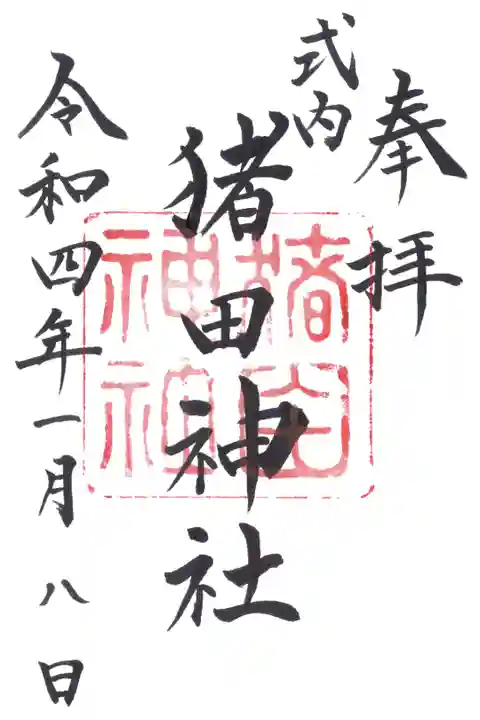 奉拝
式内
猪田神社
令和四年一月八日
猪田
神社